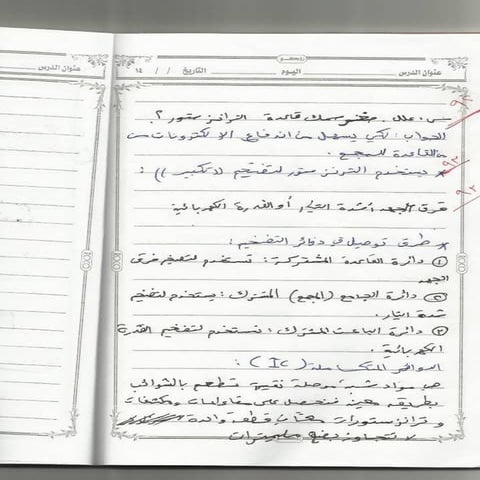 عنوان الدرس
عنوان الدرس اليوم التاريخ / / ١٤
س: علل: صغر سمك قاعدة الترانزستور؟
الجواب: لكي يسهل من اندفاع الالكترونات من
القاعدة للمجمع.
* يستخدم الترنزستور لتضخيم (تكبير):
فرق الجهد، شدة التيار أو القدرة الكهربائية
* طرق توصيل في دوائر التضخيم:
① دائرة القاعدة المشتركة: تستخدم لتضخيم فرق
الجهد
② دائرة الجامع (المجمع) المشترك: يستخدم لتضخيم
شدة التيار.
③ دائرة الباعث المشترك: تستخدم لتضخيم القدرة
الكهربائية.
الدوائر المتكاملة (Ic):
هي مواد شبه موصلة نقية تطعم بالشوائب
بطريقة معينة فنحصل على مقاومات ومكثفات
وترانزستورات قطعة واحدة
لا تتجاوز بضع مليمترات